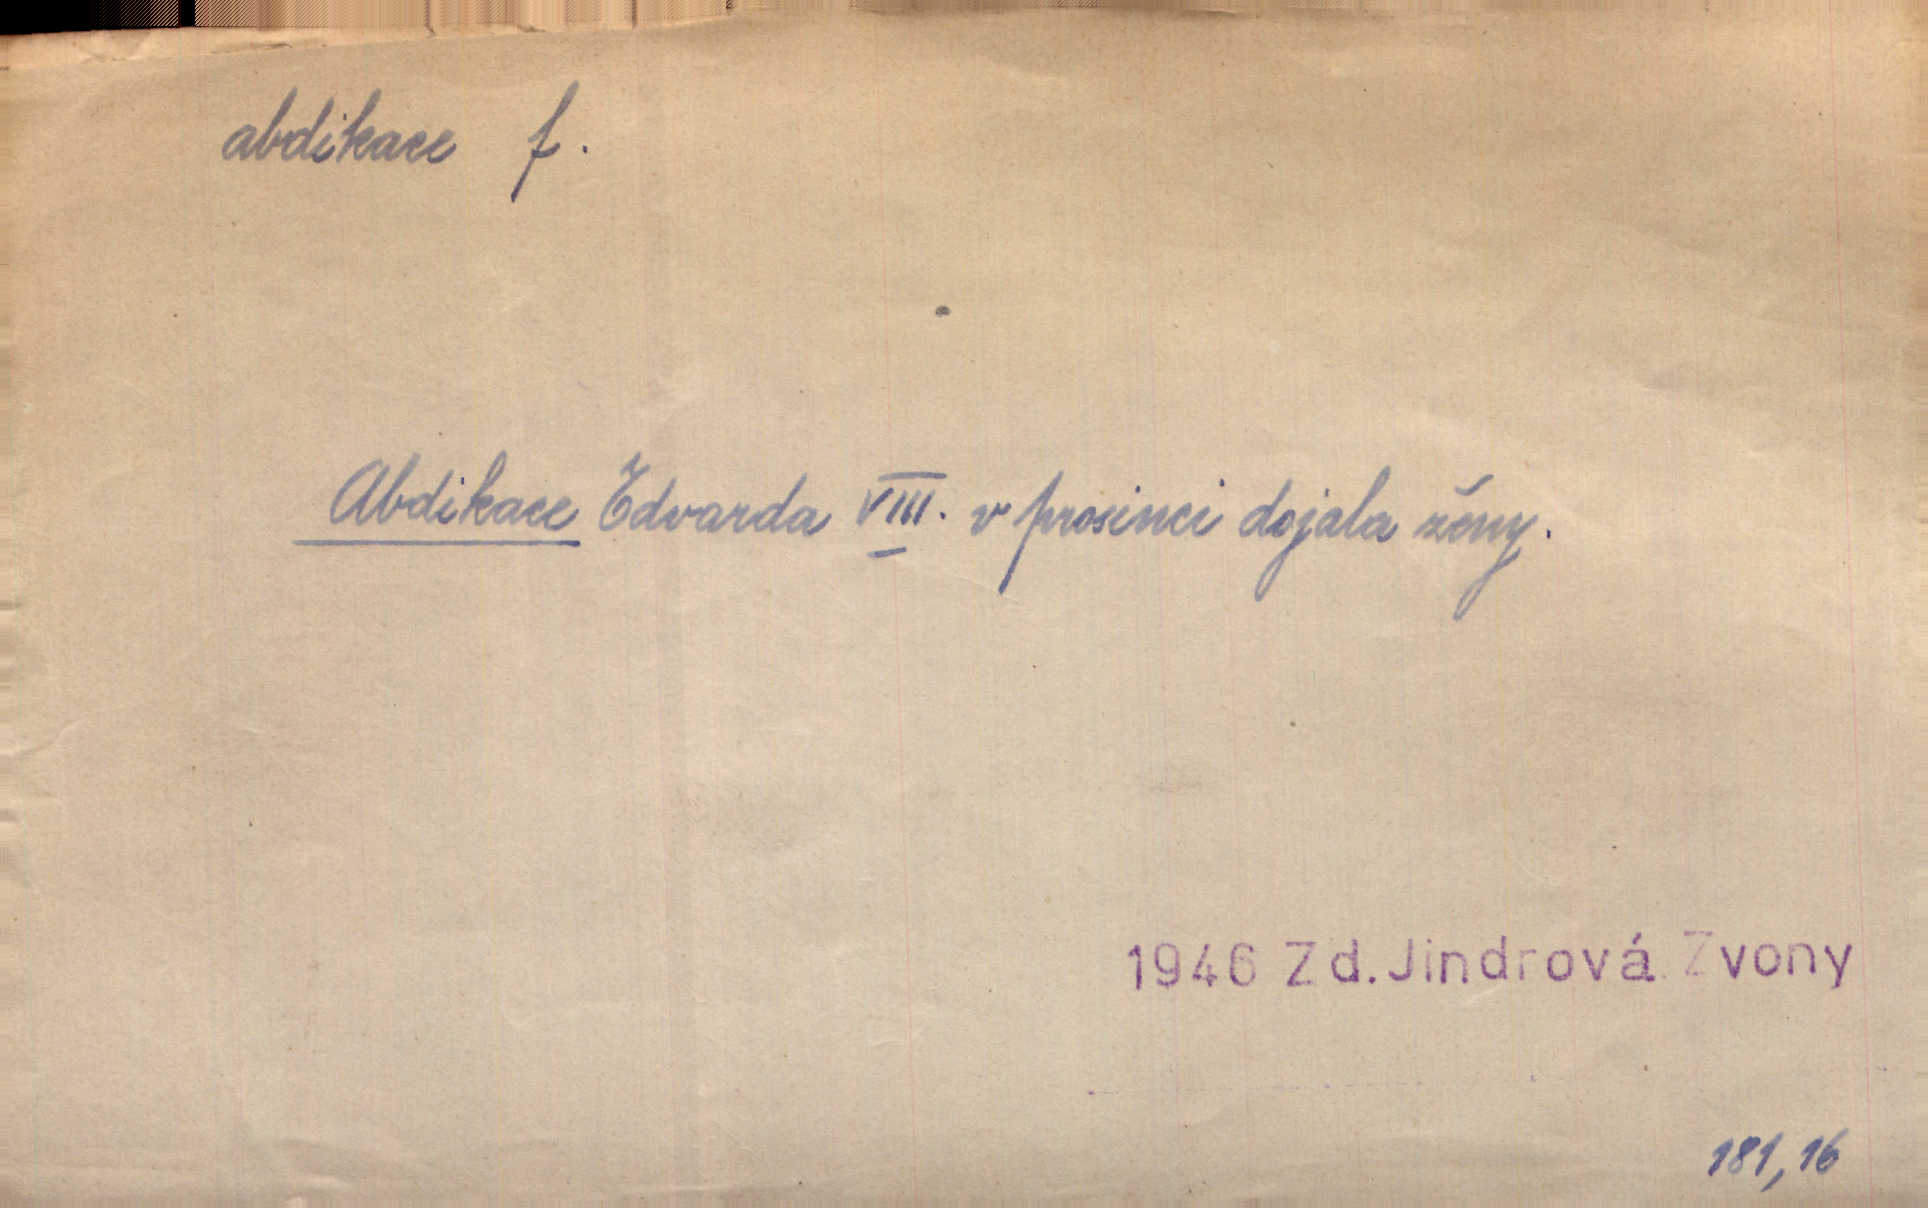 abdikace f.
Abdikace Edvarda VIII. v prosinci dojala ženy.
1946 Zd. Jindrová Zvony
181, 16